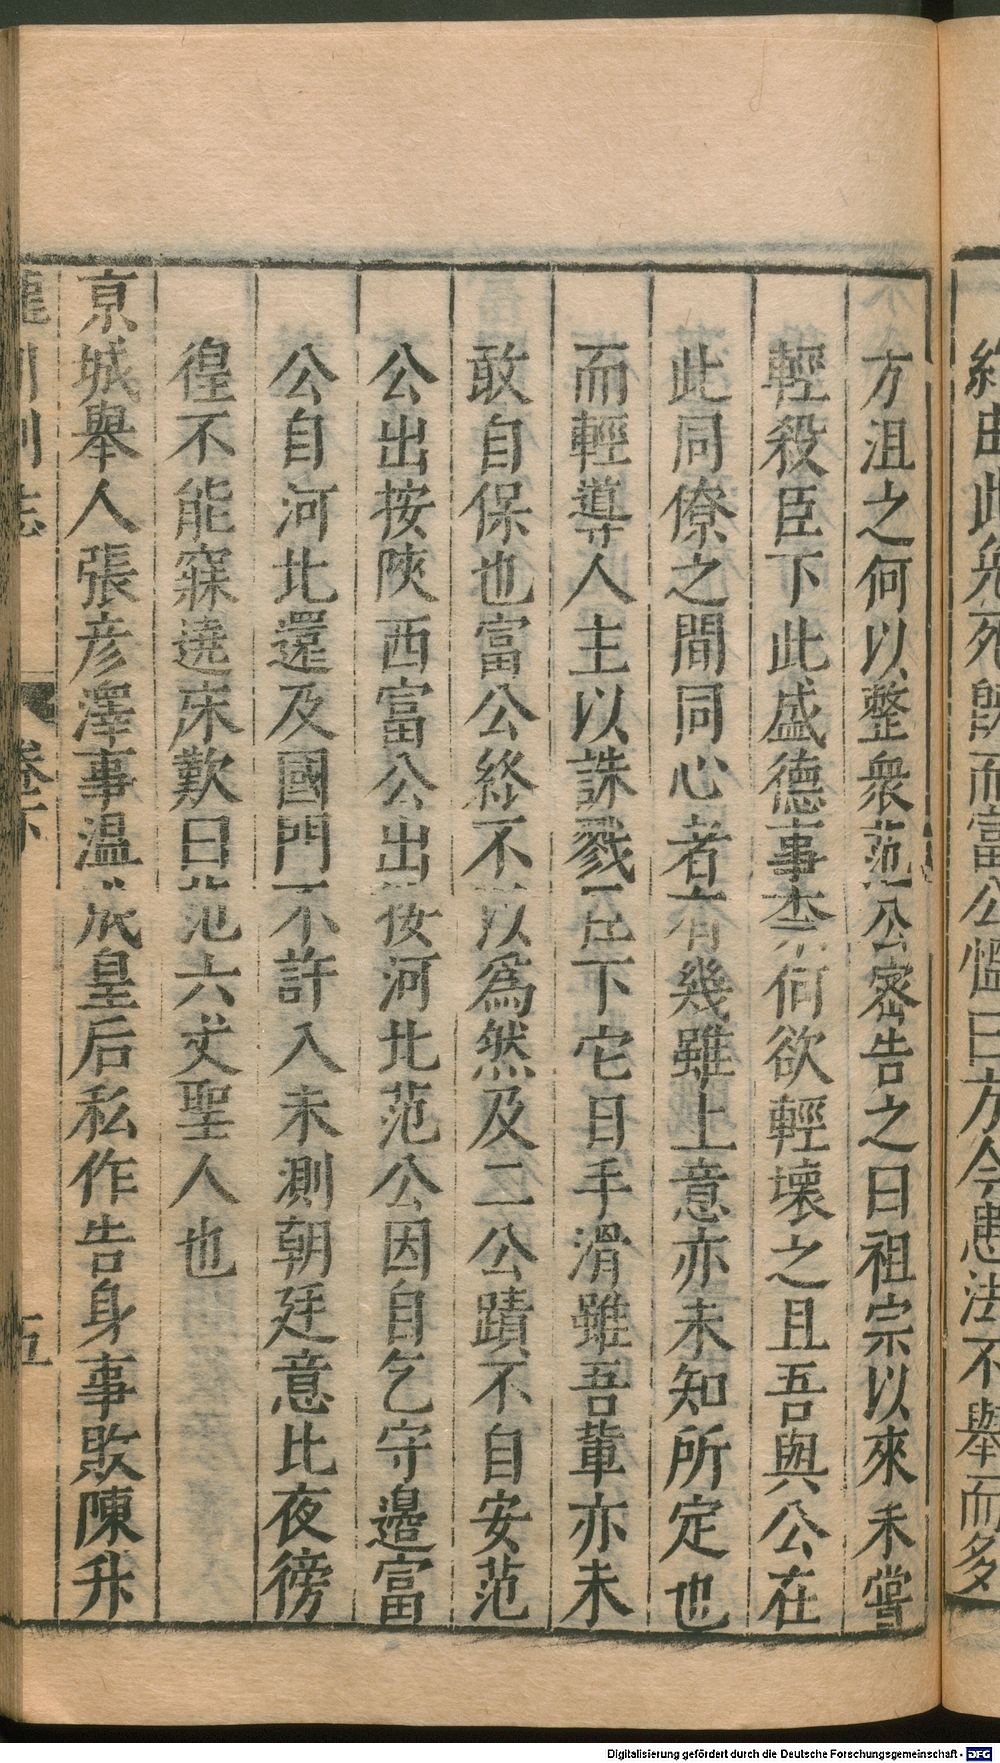 約由此免死既而富公慍曰方今患法不舉而多
方沮之何以整衆范公密告之曰祖宗以來未嘗
輕殺臣下此盛德事柰何欲輕壞之且吾與公在
此同僚之間同心者有幾雖上意亦未知所定也
而輕導人主以誅戮臣下它日手滑雖吾軰亦未
敢自保也富公終不以爲然及二公蹟不自安范
公出按陝西富公出按河北范公因自乞守邉富
公自河北還及國門不許入未測朝廷意比夜徬
徨不能寐遶床歎曰范六丈聖人也
京城舉人張彦澤事温成皇后私作告身事敗陳升
龍川別志
卷下
五
Digitalisierung gefördert durch die Deutsche Forschungsgemeinschaft - DFG